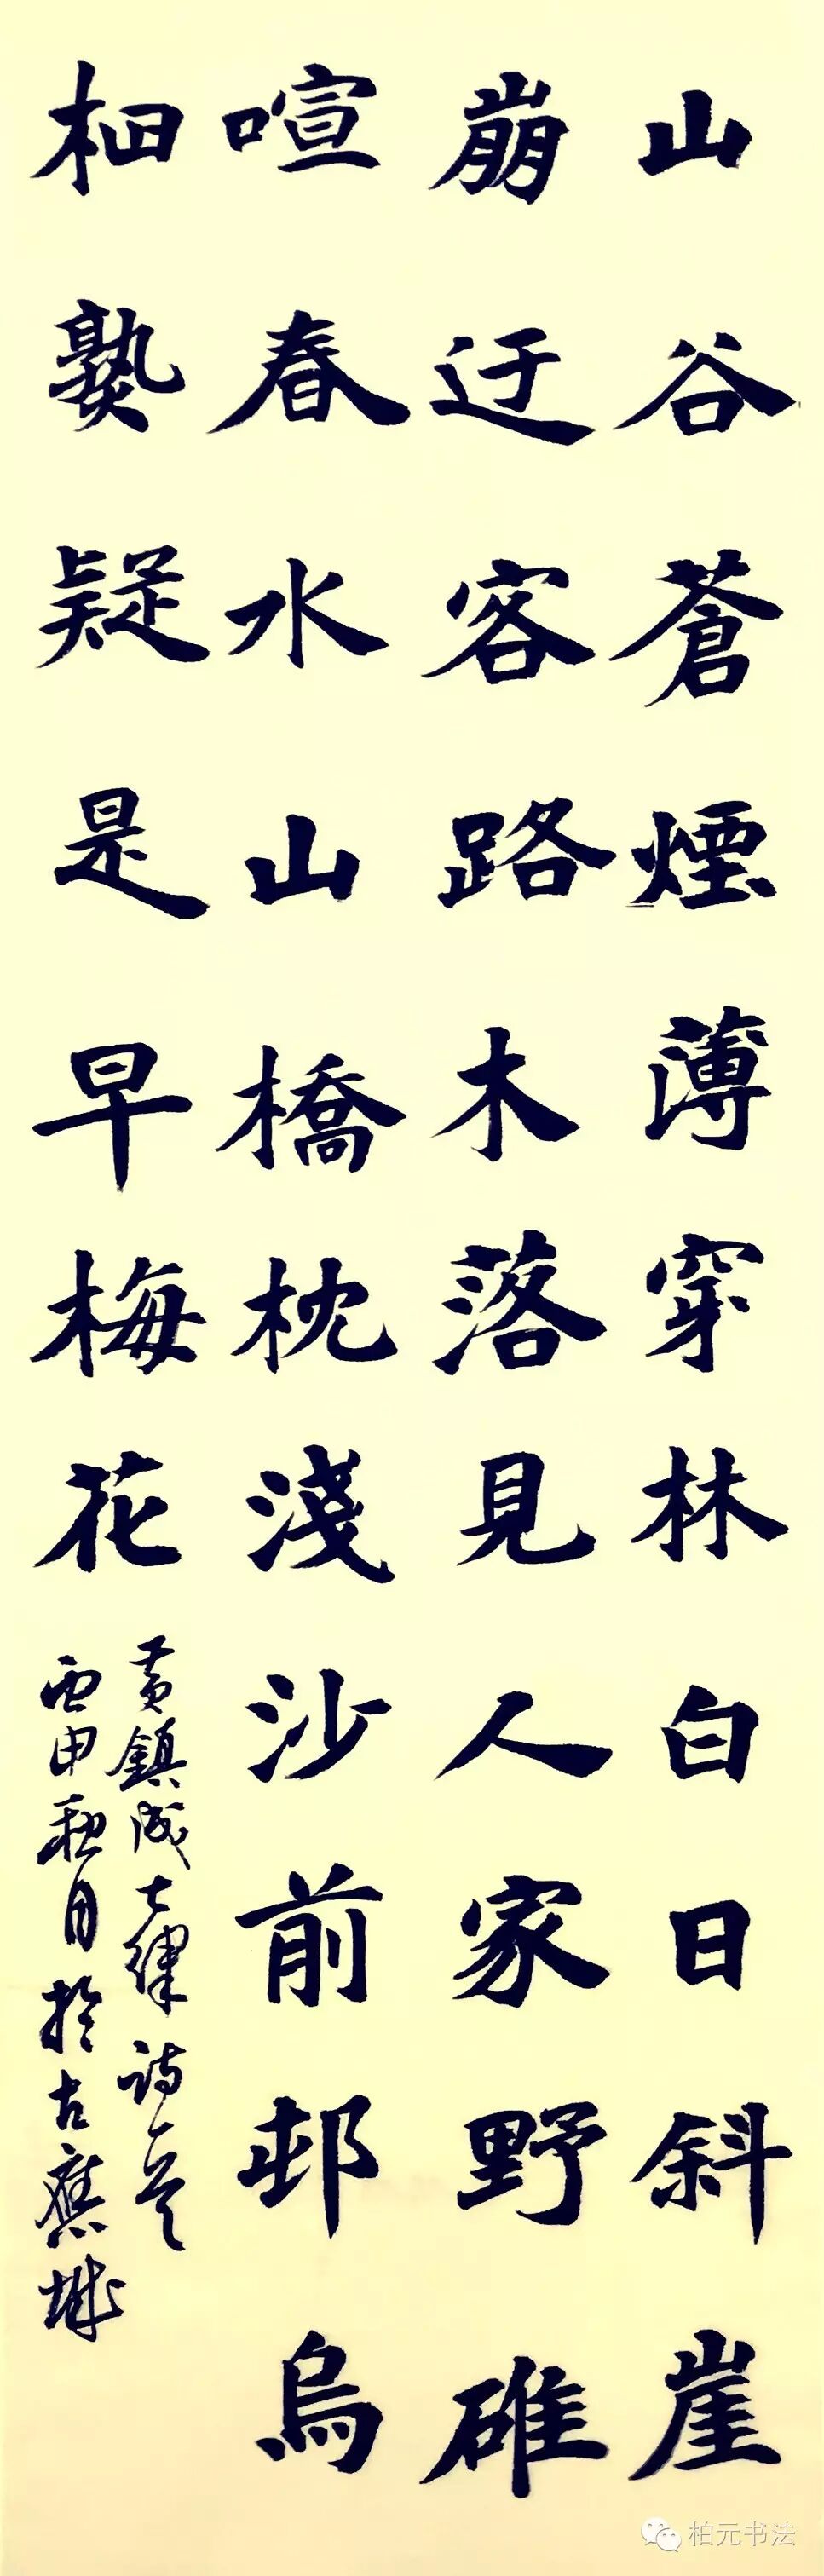 山谷蒼煙薄穿林白日斜崖
崩迂客路木落見人家野碓
喧春水山橋枕淺沙前邨烏
桕熟疑是早梅花
黄鎮成七律詩一首
丙申秋月於古城
柏元书法